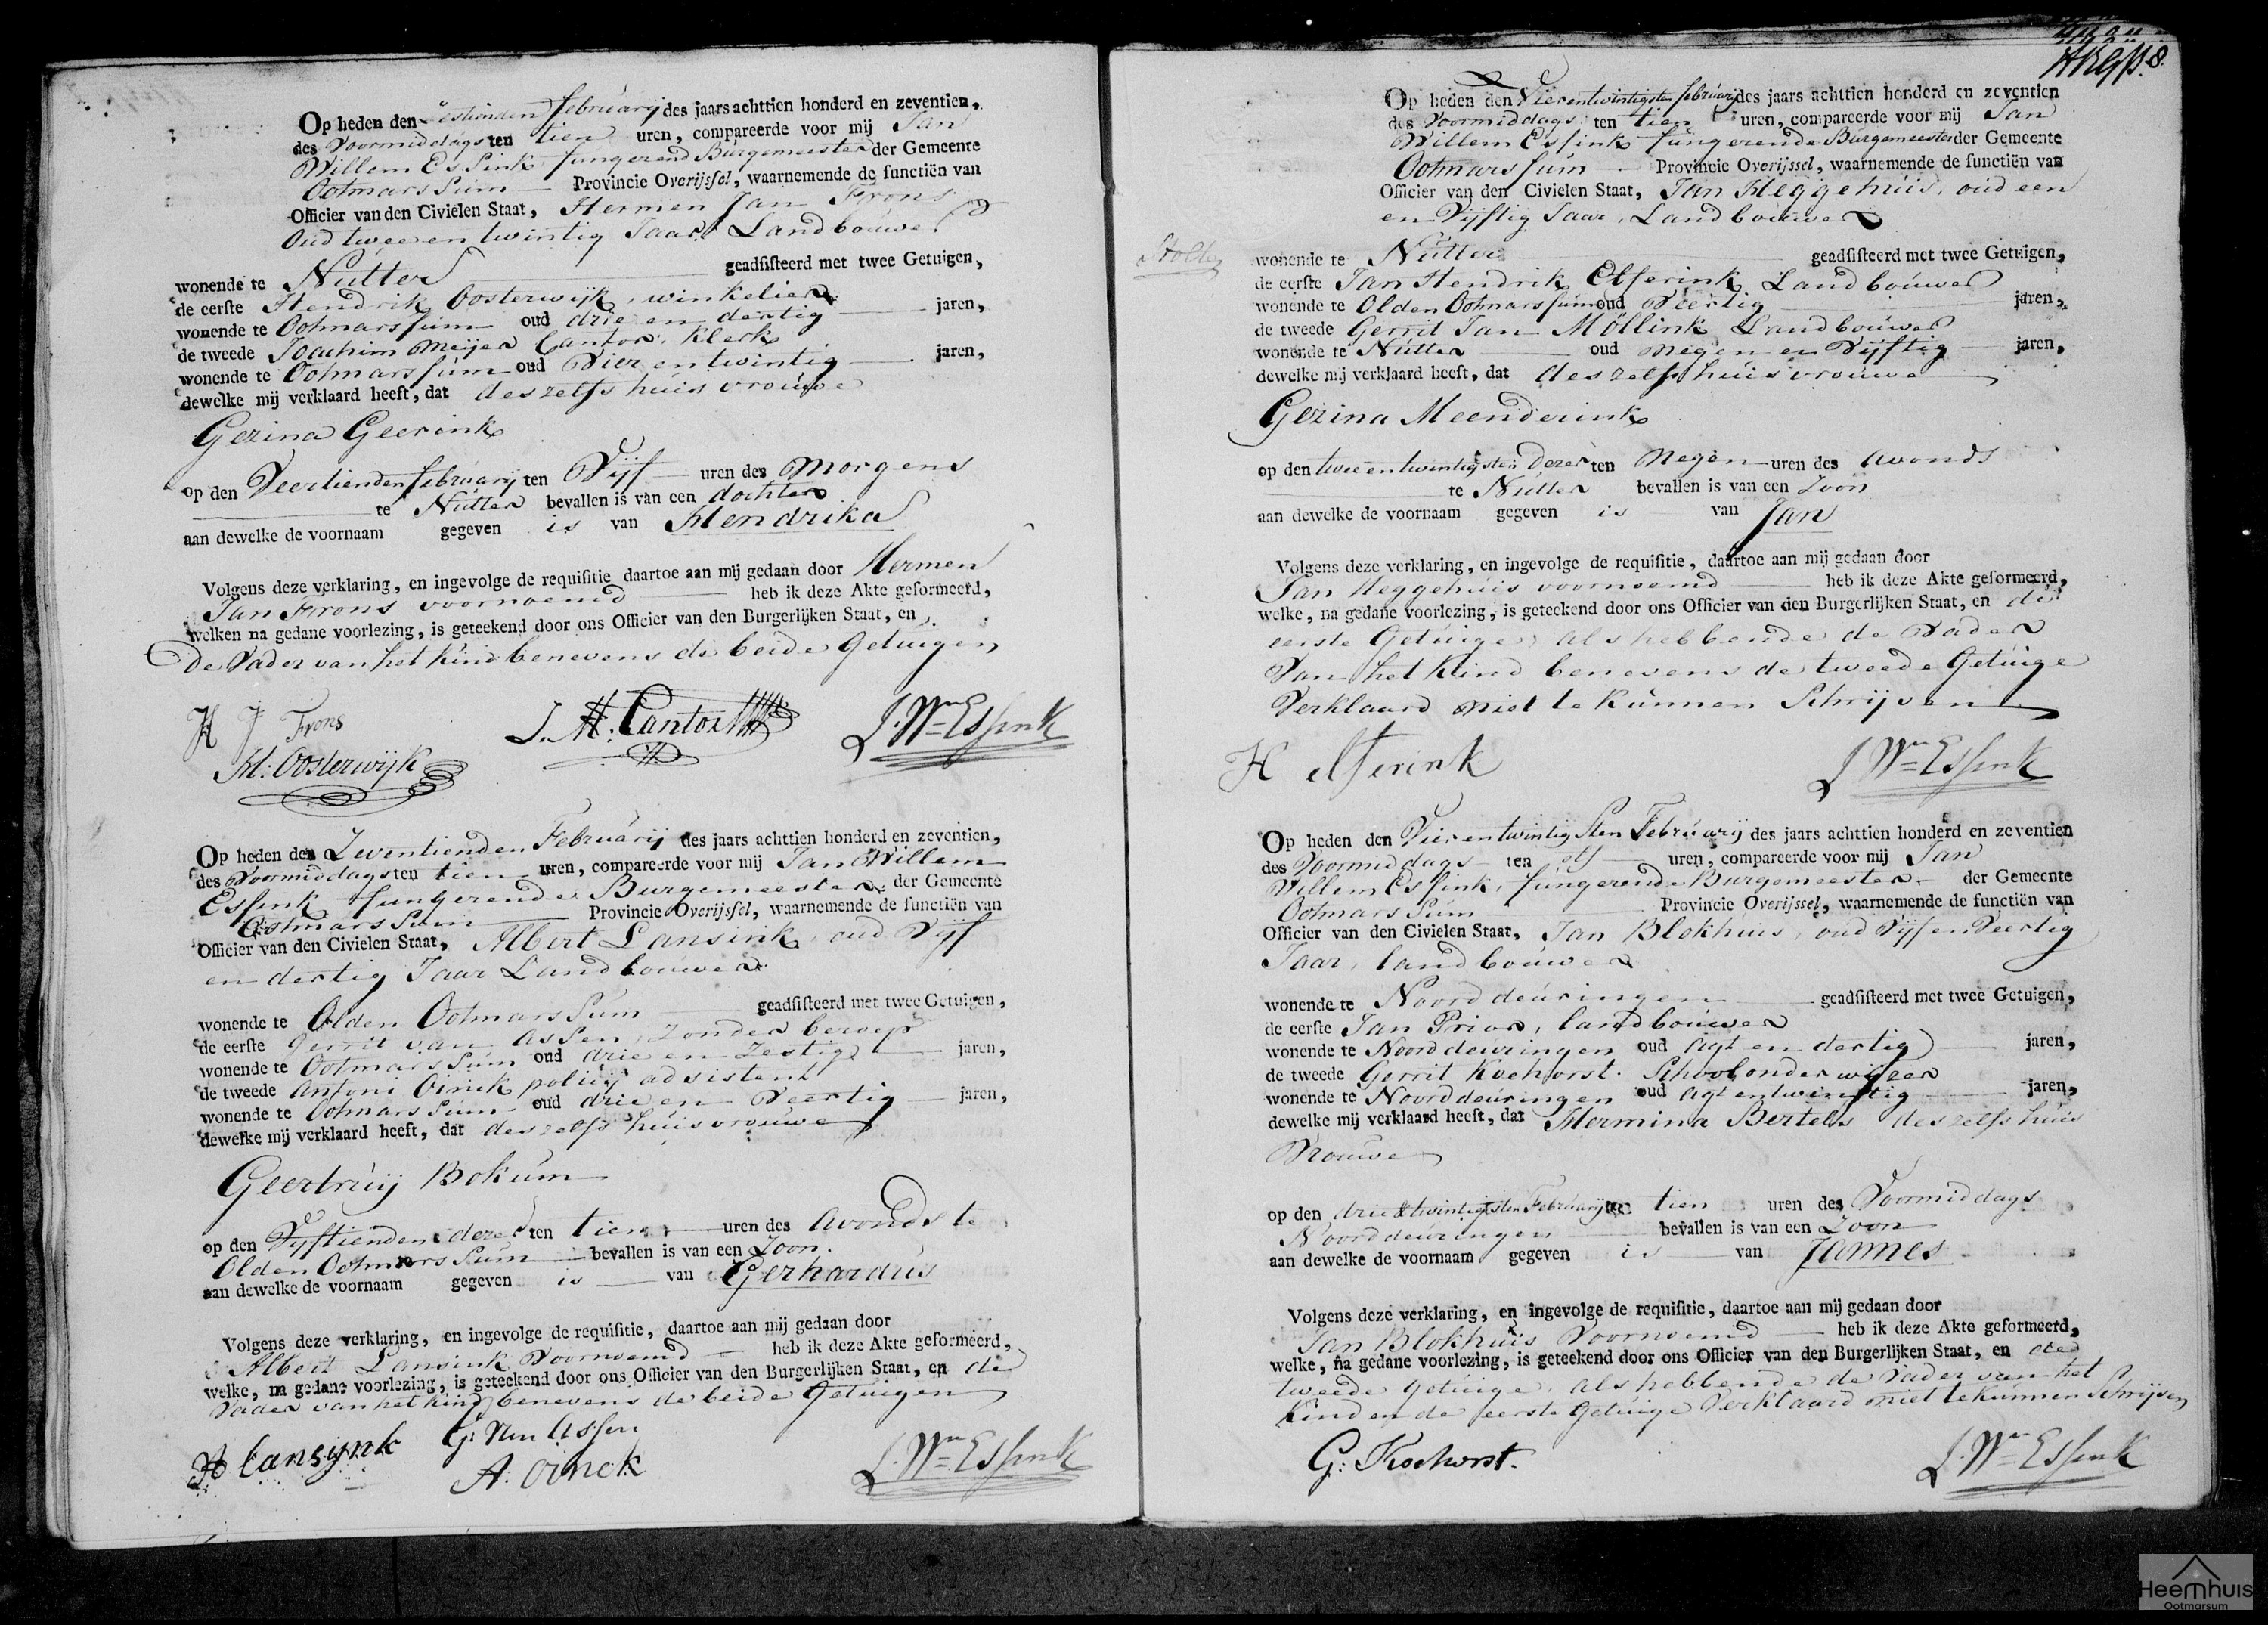 Op heden den Zestienden februarij des jaars achttien honderd en zeventien,
des voormiddags ten tien uren, compareerde voor mij Jan
Willem Essink fungerend Burgemeester der Gemeente
Ootmarssum Provincie Overijssel, waarnemende de functiën van
Officier van den Civielen Staat, Hermen Jan Frons
Oud twee en twintig Jaar, Landbouwer
wonende te Nutter geadsisteerd met twee Getuigen,
de eerste Hendrik Oosterwijk, winkelier
wonende te Ootmarssum oud drie en dertig jaren,
de tweede Joachim Meijer Cantor, Klerk
wonende te Ootmarssum oud Vier en twintig jaren,
dewelke mij verklaard heeft, dat deszelfs huis vrouwe
Gezina Geerink
op den Veertienden februarij ten Vijf uren des morgens
te Nutter bevallen is van een dochter
aan dewelke de voornaam gegeven is van Hendrika
Volgens deze verklaring, en ingevolge de requisitie daartoe aan mij gedaan door Hermen
Jan Frons voornoemd heb ik deze Akte geformeerd,
welken na gedane voorlezing, is geteekend door ons Officier van den Burgerlijken Staat, en
de Vader van het Kind benevens de beide Getuigen
H J Frons
J. M. Cantor
J. Wm Essink
H. Oosterwijk
Op heden den Zeventienden Februarij des jaars achttien honderd en zeventien,
des voormiddags ten tien uren, compareerde voor mij Jan Willem
Essink fungerende Burgemeester der Gemeente
Ootmarssum Provincie Overijssel, waarnemende de functiën van
Officier van den Civielen Staat, Albert Lansink, oud Vijf
en dertig Jaar Landbouwer
wonende te Olden Ootmarssum geadsisteerd met twee Getuigen,
de eerste Gerrit van Assen, zonder beroep
wonende te Ootmarssum oud drie en zestig jaren,
de tweede Antoni Oinck policij adsistent
wonende te Ootmarssum oud drie en Veertig jaren,
dewelke mij verklaard heeft, dat deszelfs huisvrouwe
Geertruij Bokum
op den Vijftienden dezer ten tien uren des Avonds te
Olden Ootmarssum bevallen is van een Zoon.
aan dewelke de voornaam gegeven is van Gerhardus
Volgens deze verklaring, en ingevolge de requisitie, daartoe aan mij gedaan door
Albert Lansink Voornoemd heb ik deze Akte geformeerd,
welke, na gedane voorlezing, is geteekend door ons Officier van den Burgerlijken Staat, en de
Vader van het Kind benevens de beide Getuigen
A Lansijnk
G. van Assen
A. Oinck
J. Wm Essink
Op heden den Vierentwintigsten februarij des jaars achttien honderd en zeventien
des Voormiddags ten tien uren, compareerde voor mij Jan
Willem Essink fungerende Burgemeester der Gemeente
Ootmarssum Provincie Overijssel, waarnemende de functiën van
Officier van den Civielen Staat, Jan Heggehuis, oud een
en Vijftig Jaar, Landbouwer
wonende te Nutter geadsisteerd met twee Getuigen,
de eerste Jan Hendrik Elferink Landbouwer
wonende te Olden Ootmarssum oud Veertig jaren,
de tweede Gerrit Jan Möllink Landbouwer
wonende te Nutter oud Negen en Vijftig jaren,
dewelke mij verklaard heeft, dat deszelfs huisvrouwe
Gezina Meenderink
op den twee en twintigsten Dezer ten Negen uren des Avonds
te Nutter bevallen is van een Zoon
aan dewelke de voornaam gegeven is van Jan
Volgens deze verklaring, en ingevolge de requisitie, daartoe aan mij gedaan door
Jan Heggehuis voornoemd heb ik deze Akte geformeerd,
welke, na gedane voorlezing, is geteekend door ons Officier van den Burgerlijken Staat, en de
eerste Getuige, als hebbende de Vader
Van het Kind benevens de tweede Getuige
Verklaard niet te Kunnen Schrijven
H Elferink
J Wm Essink
Op heden den Vierentwintigsten Februarij des jaars achttien honderd en zeventien
des Voormiddags ten elf uren, compareerde voor mij Jan
Willem Essink, fungerende Burgemeester der Gemeente
Ootmarssum Provincie Overijssel, waarnemende de functiën van
Officier van den Civielen Staat, Jan Blokhuis, oud Vijf en Veertig
Jaar, landbouwer
wonende te Noorddeuringen geadsisteerd met twee Getuigen,
de eerste Jan Prior, landbouwer
wonende te Noorddeuringen oud Agt en dertig jaren,
de tweede Gerrit Koehorst. Schoolonderwijzer
wonende te Noorddeuringen oud Agt entwintig jaren,
dewelke mij verklaard heeft, dat Hermina Bertels deszelfs huis
Vrouwe
op den drie & twintigsten Februarij te tien uren des Voormiddags
Noorddeuringen bevallen is van een Zoon
aan dewelke de voornaam gegeven is van Jannes
Volgens deze verklaring, en ingevolge de requisitie, daartoe aan mij gedaan door
Jan Blokhuis Voornoemd heb ik deze Akte geformeerd,
welke, na gedane voorlezing, is geteekend door ons Officier van den Burgerlijken Staat, en de
tweede Getuige, als hebbende de Vader van het
Kind en de eerste Getuige Verklaard niet te Kunnen Schrijven
G. Koehorst.
J. Wm Essink
Heemhuis
Ootmarsum